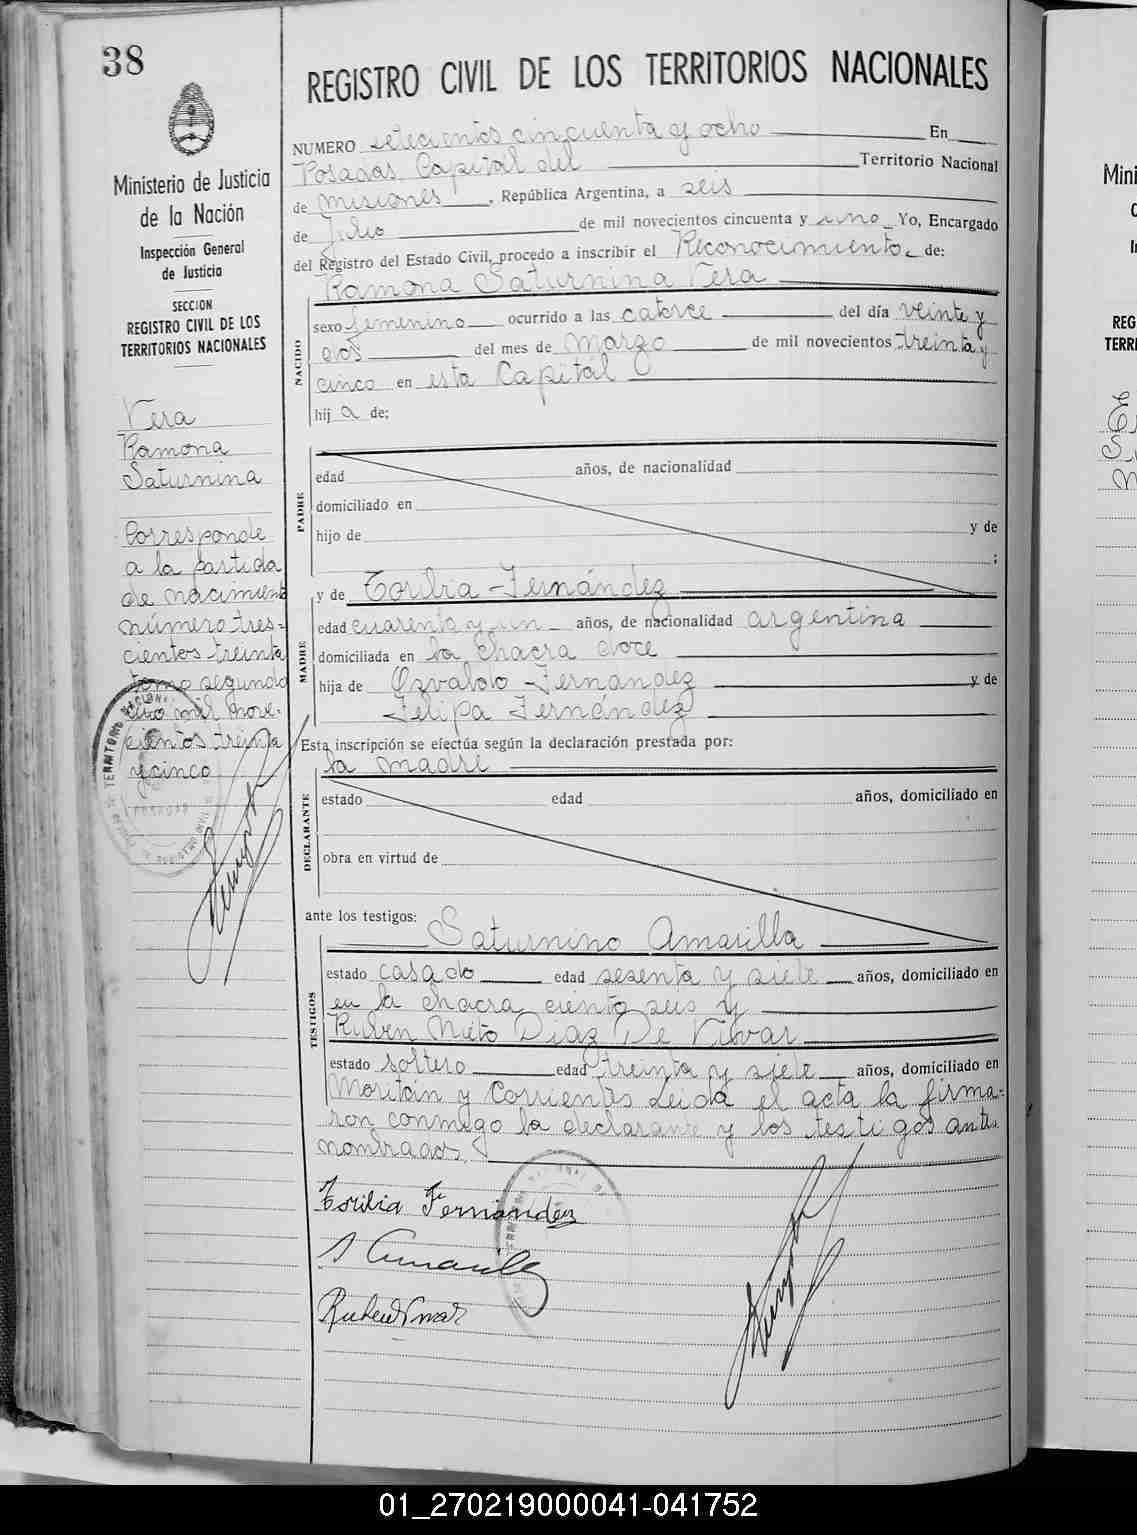 38
Ministerio de Justicia
de la Nación
Inspección General
de Justicia
SECCION
REGISTRO CIVIL DE LOS
TERRITORIOS NACIONALES
Vera
Ramona
Saturnina
Corresponde
a la partida
de nacimiento
número tres-
cientos treinta
tomo segundo
año mil nove-
cientos treinta
y cinco
REGISTRO CIVIL DE LOS TERRITORIOS NACIONALES
NUMERO setecientos cincuenta y ocho En
Posadas Capital del Territorio Nacional
de Misiones, República Argentina, a seis
de Julio de mil novecientos cincuenta y uno Yo, Encargado
del Registro del Estado Civil, procedo a inscribir el Reconocimiento de:
Ramona Saturnina Vera
NACIDO
sexo femenino ocurrido a las catorce del día veinte y
dos del mes de marzo de mil novecientos treinta y
cinco en esta Capital
hij a de:
PADRE
edad años, de nacionalidad
domiciliado en
hijo de y de
;
y de Toribia Fernández
MADRE
edad cuarenta y un años, de nacionalidad argentina
domiciliada en la chacra doce
hija de Osvaldo Fernandez y de
Felipa Fernández
Esta inscripción se efectúa según la declaración prestada por:
la madre
DECLARANTE
estado edad años, domiciliado en
obra en virtud de
ante los testigos:
Saturnino Amarilla
TESTIGOS
estado casado edad sesenta y siete años, domiciliado en
en la chacra ciento seis y
Ruben Nieto Diaz De Vivar
estado soltero edad treinta y siete años, domiciliado en
Moritán y Corrientes Leida el acta la firma-
ron conmigo la declarante y los testigos ante
nombrados.
Toribia Fernández
S Amarilla
Ruben Vivar
Mini
REG
TERRI
01_270219000041-041752